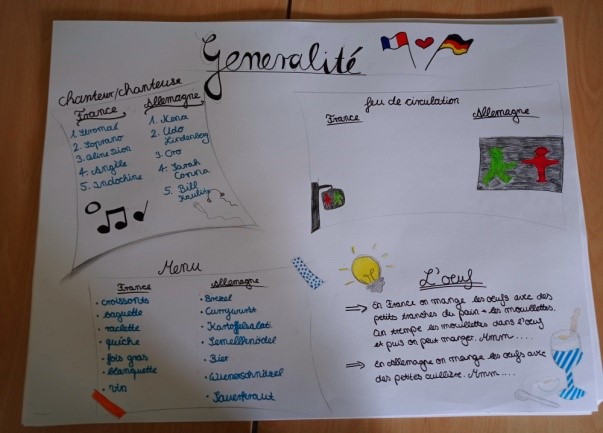 Generalité
Chanteur/chanteuse
France
1. Stromaé
2. Soprano
3. Aline Dion
4. Angèle
5. Indochine
Allemagne
1. Nena
2. Udo
Lindenberg
3. Cro
4. Sarah
Connor
5. Bill
Kaulitz
feu de circulation
France
Allemagne
Menu
France
• croissants
• baguette
• raclette
• quiche
• fois gras
• blanquette
• vin
Allemagne
• Brezel
• Currywurst
• Kartoffelsalat
• Semmelknödel
• Bier
• Wienerschnitzel
• Sauerkraut
L'oeuf
⇒ En France on mange les oeufs avec des
petits tranches du pain → les mouillettes.
On trempe les mouillettes dans l'oeuf
et puis on peut manger. Mmm....
⇒ En Allemagne on mange les oeufs avec
des petites cuillère. Mmm....